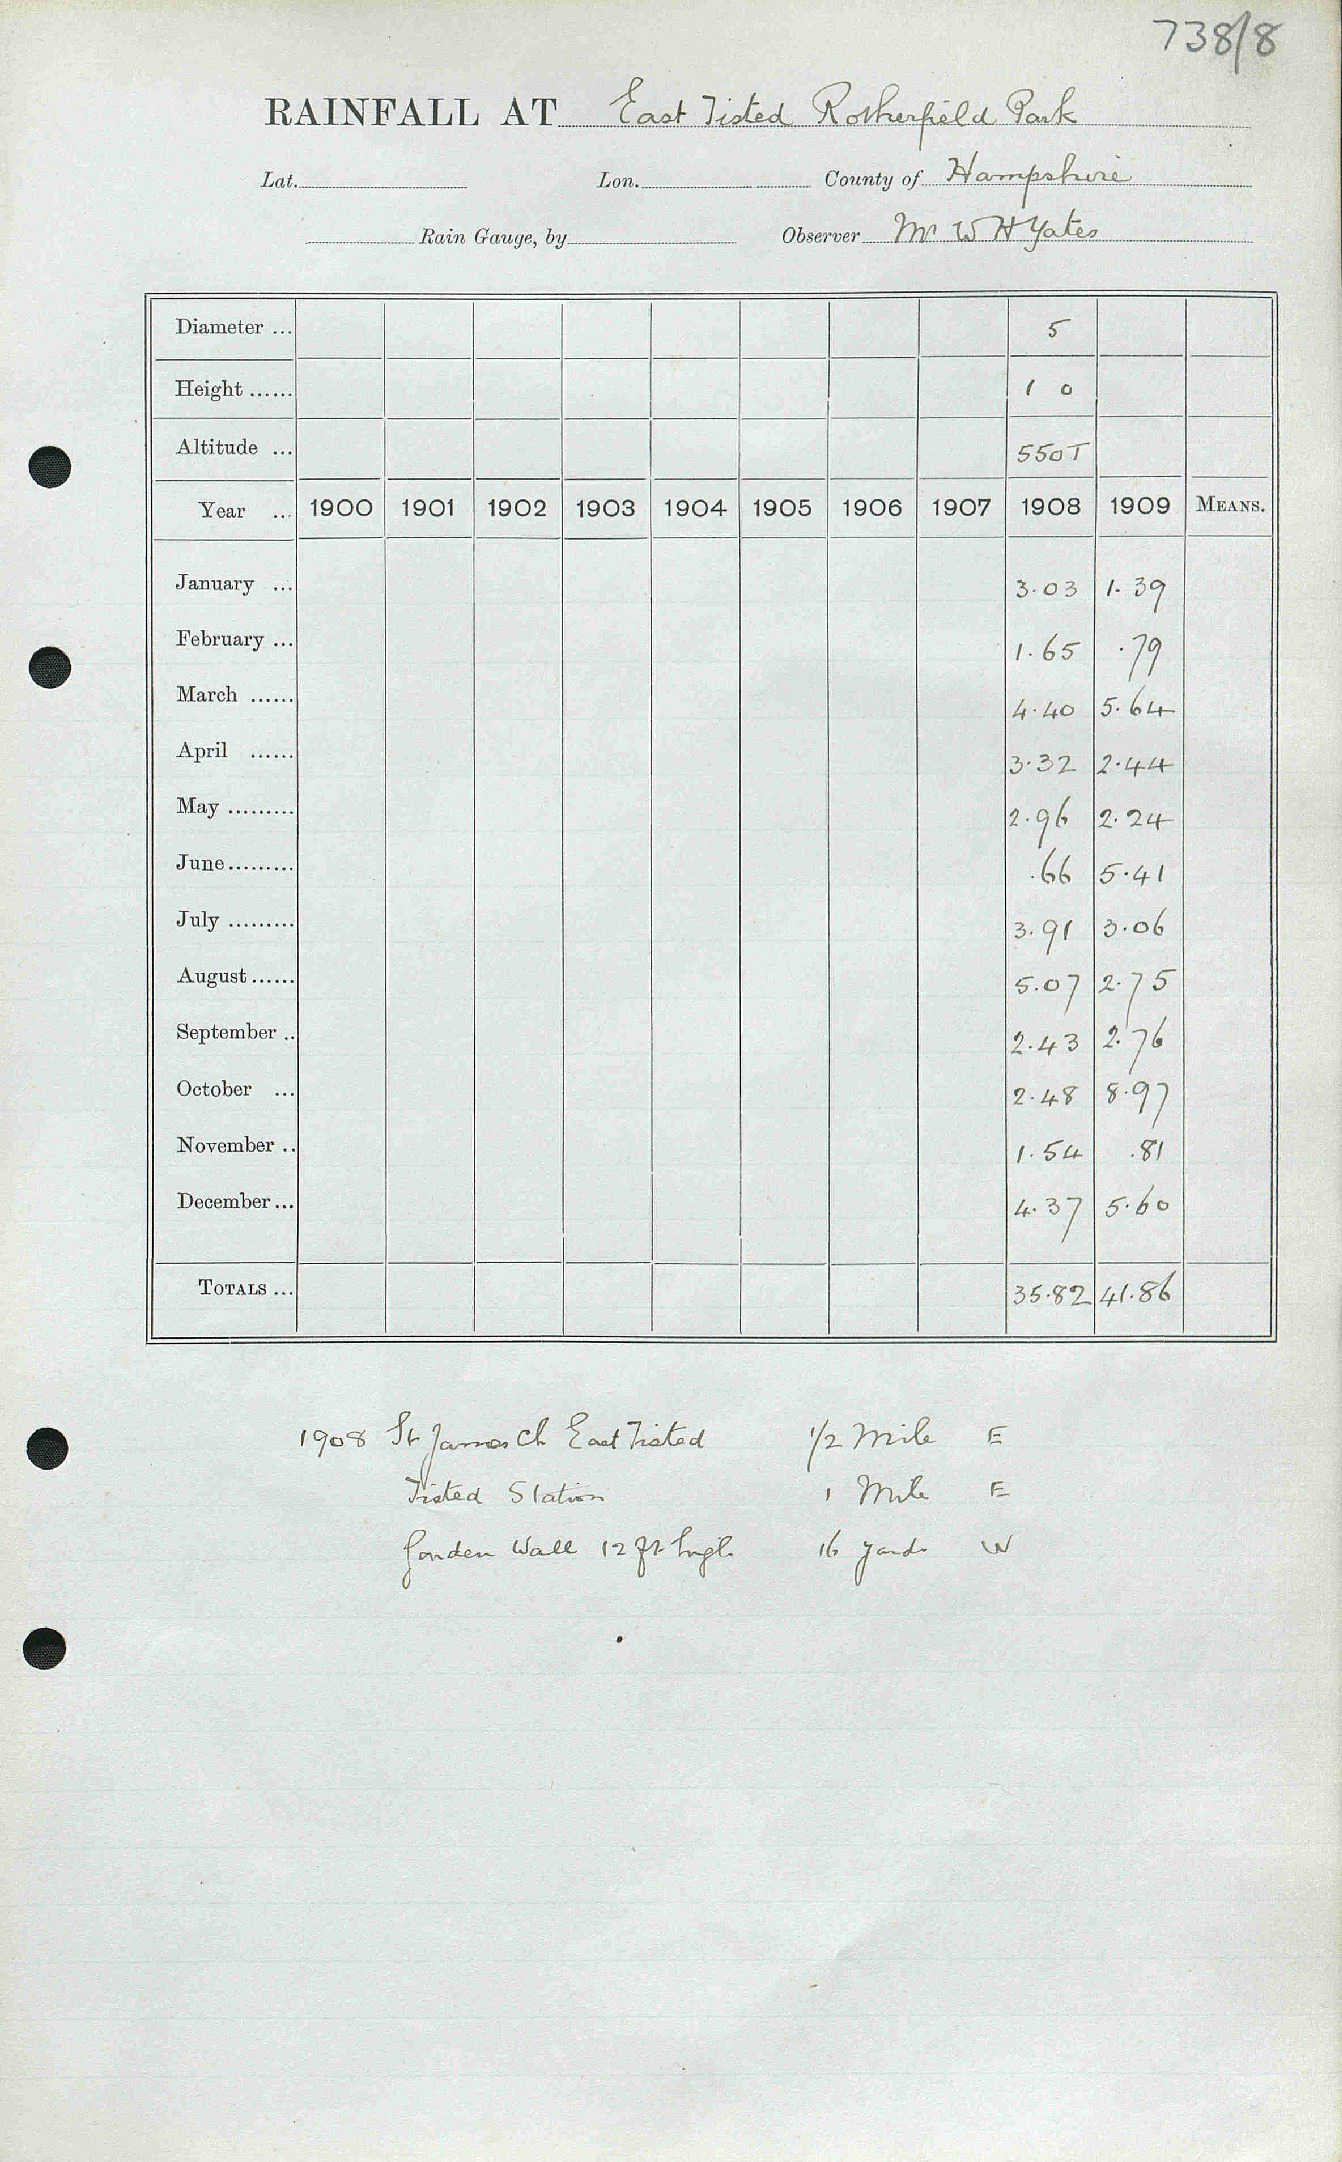 738/8
RAINFALL AT East Tisted Rotherfield Park
Lat. Lon. County of Hampshire
Rain Gauge, by Observer Mr W H Yates
Diameter ... 5
Height ...... 1 0
Altitude ... 550T
Year ... 1900 1901 1902 1903 1904 1905 1906 1907 1908 1909 MEANS.
January ... 3.03 1.39
February ... 1.65 .79
March ...... 4.40 5.64
April ...... 3.32 2.44
May ......... 2.96 2.24
June ......... .66 5.41
July ......... 3.91 3.06
August ...... 5.07 2.75
September .. 2.43 2.76
October ... 2.48 8.97
November .. 1.54 .81
December ... 4.37 5.60
TOTALS ... 35.82 41.86
1908 St James Ch East Tisted 1/2 Mile E
Tisted Station 1 Mile E
Garden Wall 12 ft high 16 yards W